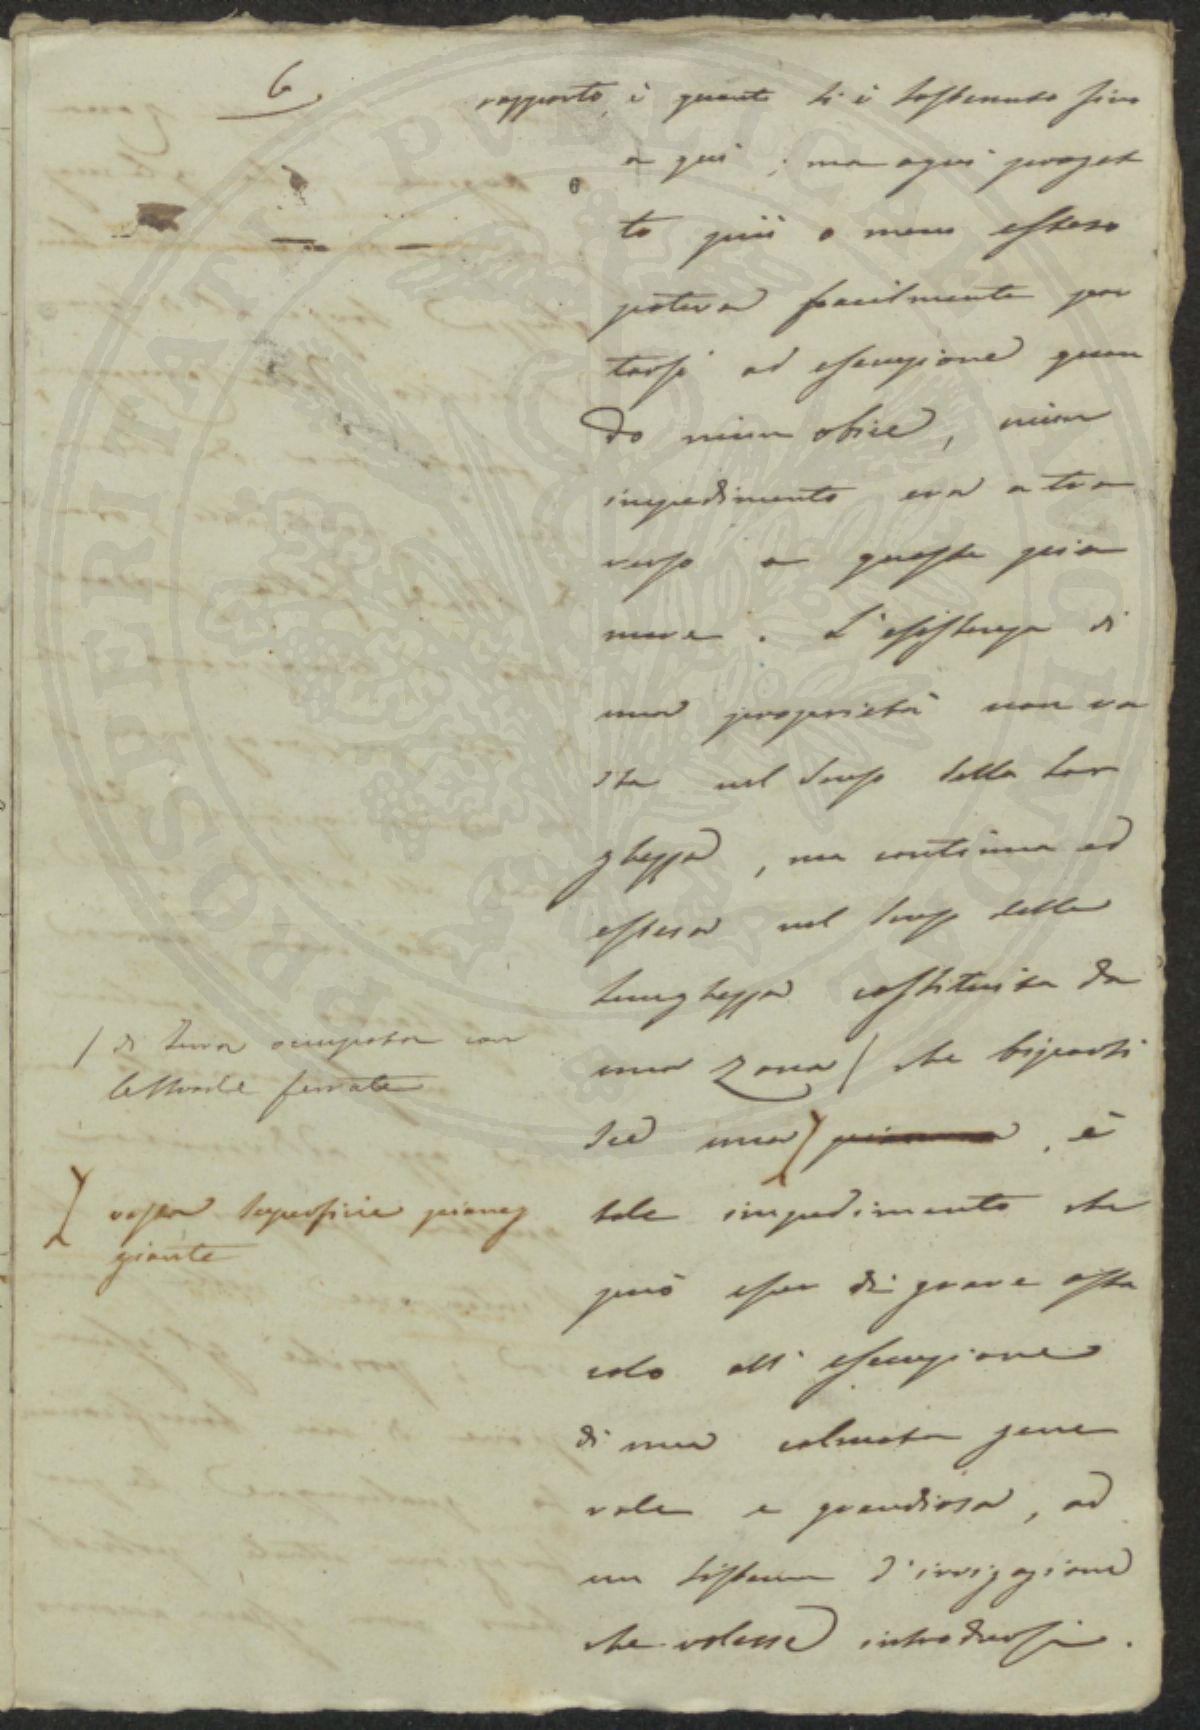 6
rapporto, è quanto si è sostenuto sino
a qui; ma ogni proget
to più o meno esteso
poteva facilmente por
tarsi ad esecuzione quan
do niun obice, niun
impedimento era attra
verso a questa pia
nura. L'esistenza di
una proprietà non va
sta nel senso della lar
ghezza, ma continua ed
estesa nel senso della
lunghezza costituita da
una zona / che bipartis
ce una } pianura, è
tale impedimento che
può esser di grave osta
colo all'esecuzione
di una colmata gene
rale e grandiosa, ad
un sistema d'irrigazione
che volesse introdursi.
/ di terra occupata con
le strade ferrate
} vasta superficie pianeg
giante
PROSPERITATI PVBLICAE AVGENDAE